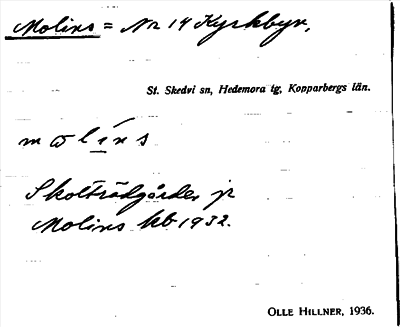 Molins = Nr 14 Kyrkbyn,
St. Skedvi sn, Hedemora tg, Kopparbergs län.
m ω l i n s
Skolträdgården jr
Molins kb 1932.
OLLE HILLNER, 1936.